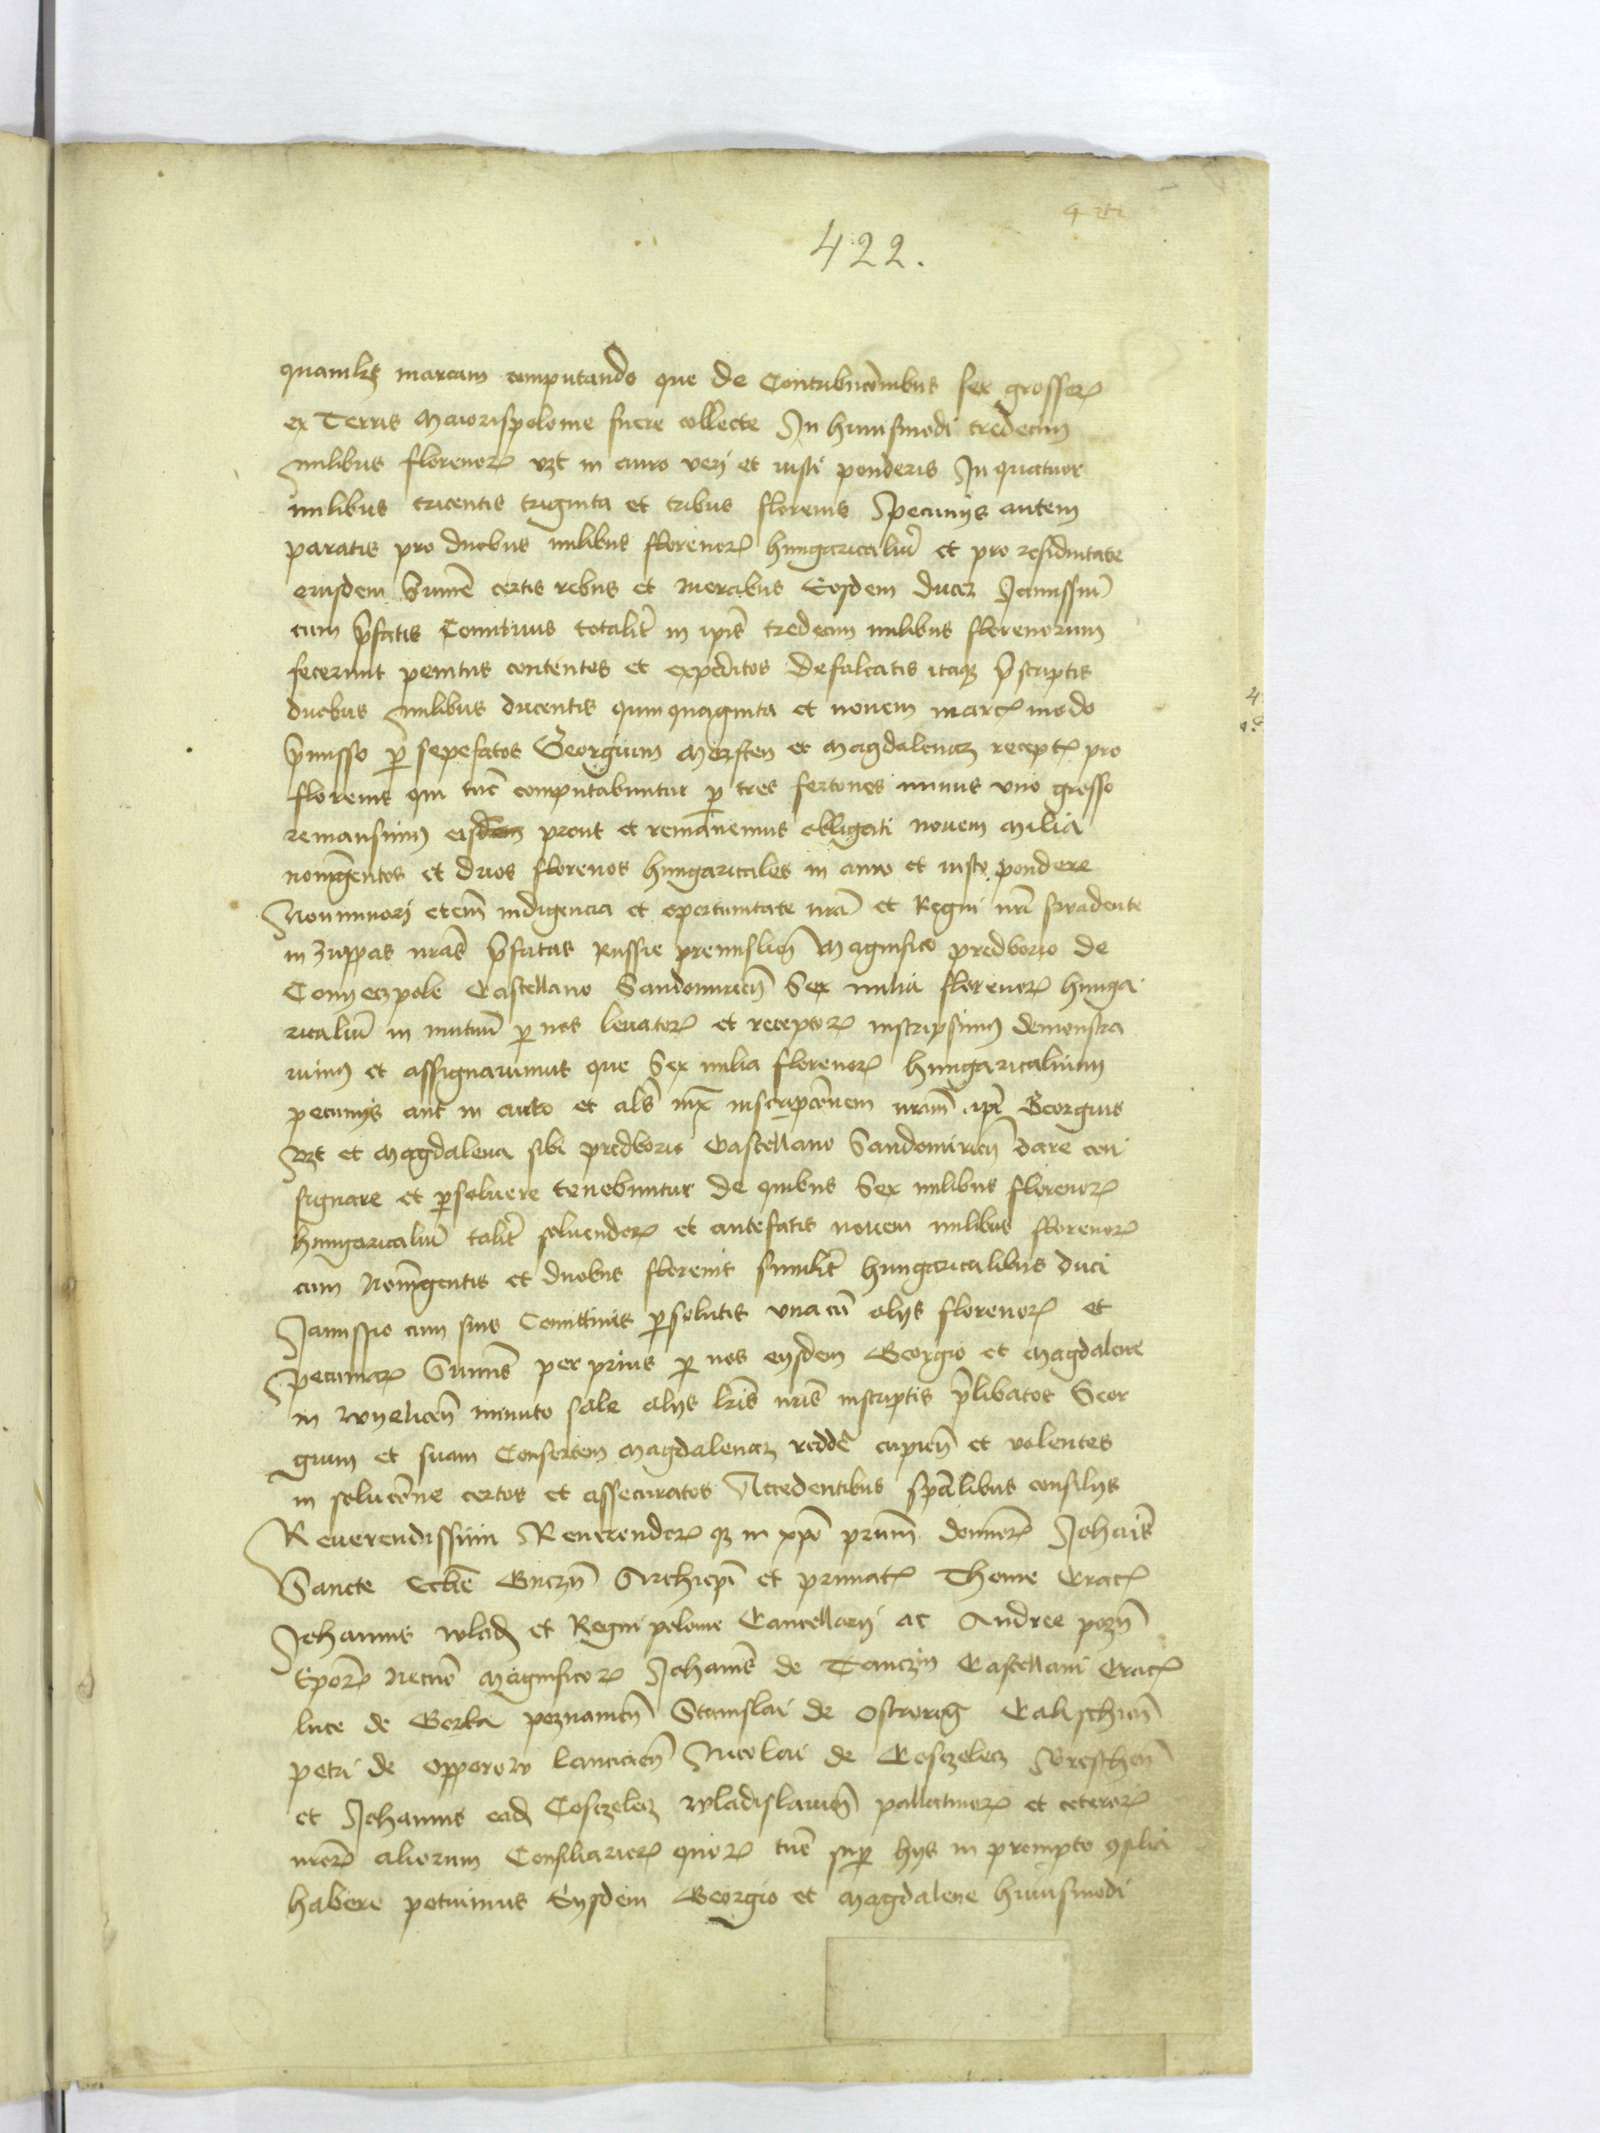 422.
quamlibet marcam computando que de Contribucionibus sex grossorum
ex Terris Maiorispolonie fuere collecte In huiusmodi tredecim
milibus florenorum vzt in auro veri et iusti ponderis In quatuor
milibus tricentis triginta et tribus florenis Specunijs autem
paratis pro duobus milibus florenorum hungaricaliu et pro residuitate
eiusdem Summe certis rebus et mercibus Eosdem ducem Janussiu
cum prefatis Comitiuis totalit in ipis tredecim milibus florenorum
fecerunt penitus contentos et expeditos defalcatis itaque prescriptis
duobus milibus ducentis quinquaginta et nouem marcis modo
premisso per sepefatos Georgium Morsten et Magdalenam receptis pro
florenis qui tunc computabuntur per tres fertones minus vno grosso
remansimus eisdem prout et remanemus obligati nouem milia
nomgentos et duos florenos hungaricales in auro et iusto pondere
Nonminori etem indigencia et oportunitate nra et Regni nri swadente
in zuppas nras prefatas Russie premislien Magnifico predborio de
Conyeczpole Castellano Sandomirien Sex milia florenorum hunga
ricaliu in mutuu per nos leuatorum et receptorum inscripsimus demonstra
uimus et assignauimus que Sex milia florenorum hungaricalium
pecunijs aut in auro et als iux inscripcionem nram ipi Georgius
vzt et Magdalena sibi predborio Castellano Sandomirien dare con
signare et persoluere tenebuntur de quibus Sex milibus florenorum
hungaricaliu talit soluendorum et antefatis nouem milibus florenorum
cum Nomgentis et duobus florenis similit hungaricalibus duci
Janussio cum suis Comittiuis persolutis vna cu alijs florenorum et
Specuniarum Summis per prius per nos eysdem Georgio et Magdalene
in wyelicien minuto sale alijs lris nris inscriptis prelibatos Geor
gium et suam Consortem Magdalenam redde cupien et volentes
in solucione certos et assecuratos Accedentibus spalibus consilijs
Reuerendissimi Reuerendorum que in xpo prum dominorum Johais
Sancte Ecclie Gneznen Archiepi et primatis Thome Crac
Johannis wlad et Regni polonie Cancellarij ac Andree pozn
Eporum Necno Magnificorum Johanis de Tanczin Castellani Crac
luce de Gorka poznanien Stanislai de Ostrorog Calischien
petri de opporow lancicien Nicolai de Coszczelecz Brestchen
et Johannis ead Coszczelecz wladislauien pallatinorum et ceterorum
nrorum aliorum Consiliariorum quorum tuc super hijs in prompto consilia
habere potuimus Eysdem Georgio et Magdalene huiusmodi